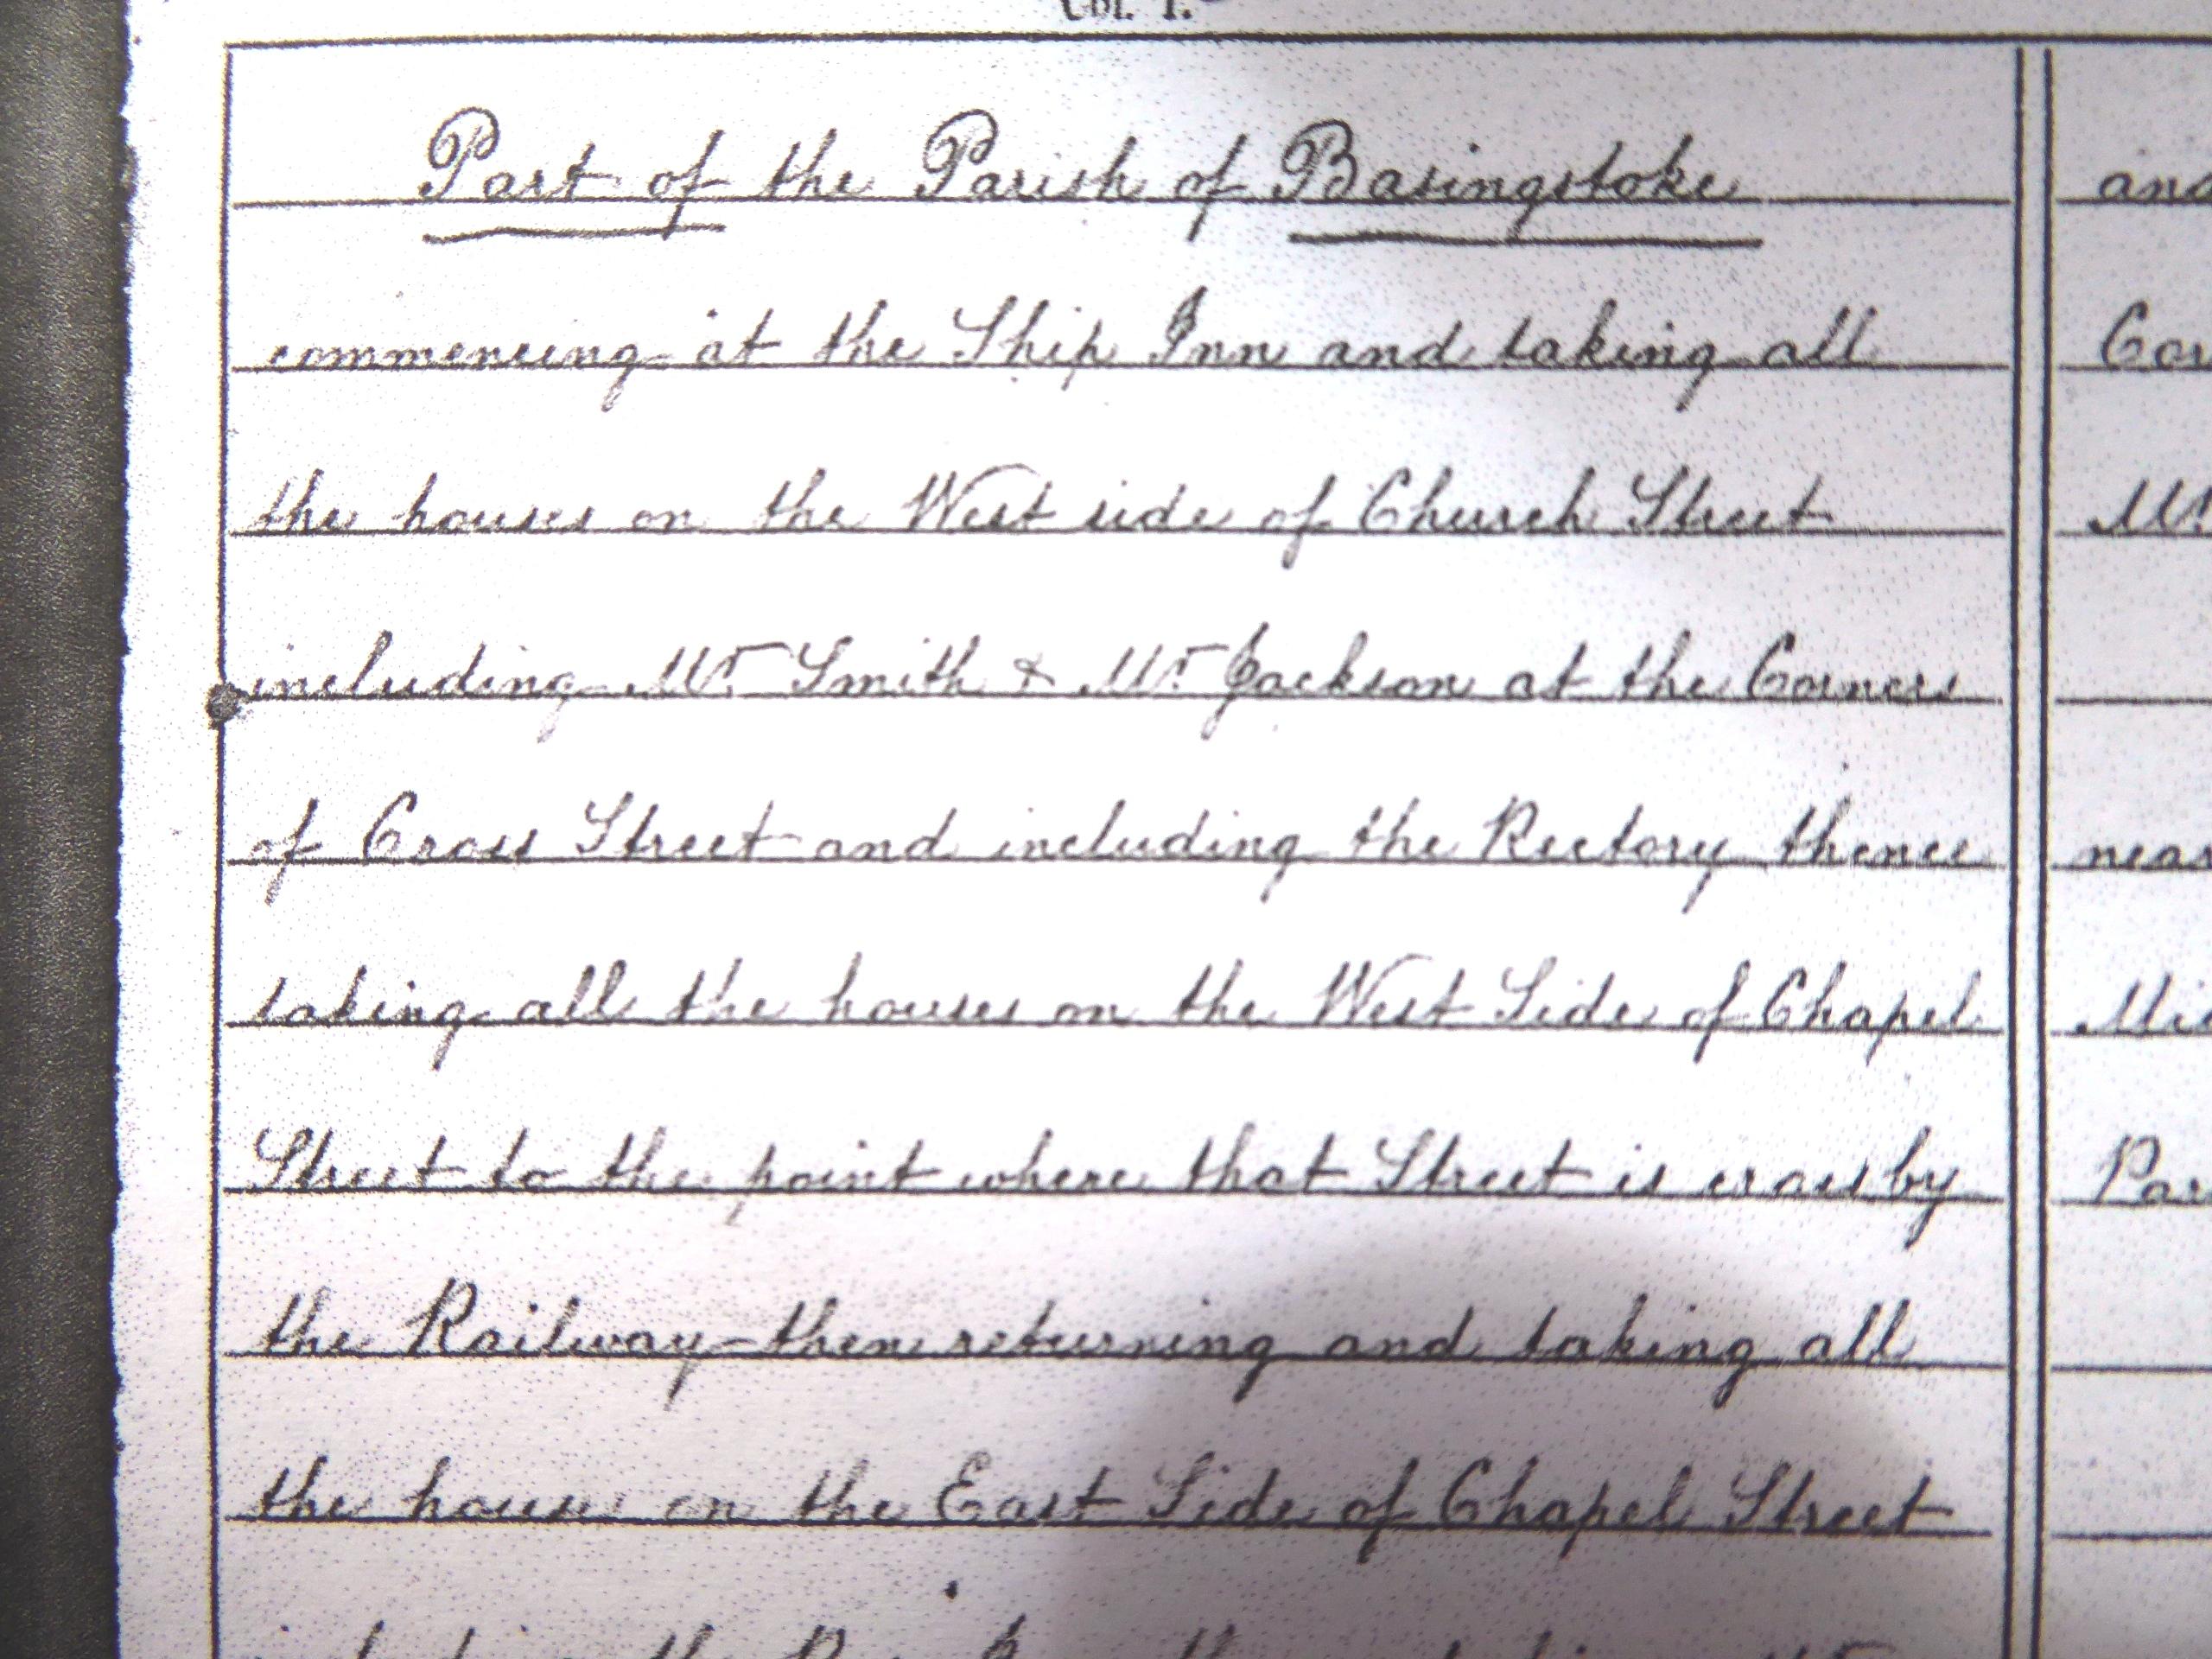 Col. 1.
Part of the Parish of Basingstoke
commencing at the Ship Inn and taking all
the houses on the West side of Church Street
including Mr Smith & Mr Jackson at the Corners
of Cross Street and including the Rectory thence
taking all the houses on the West Side of Chapel
Street to the point where that Street is cross by
the Railway - then returning and taking all
the houses on the East Side of Chapel Street
and
Mr
near